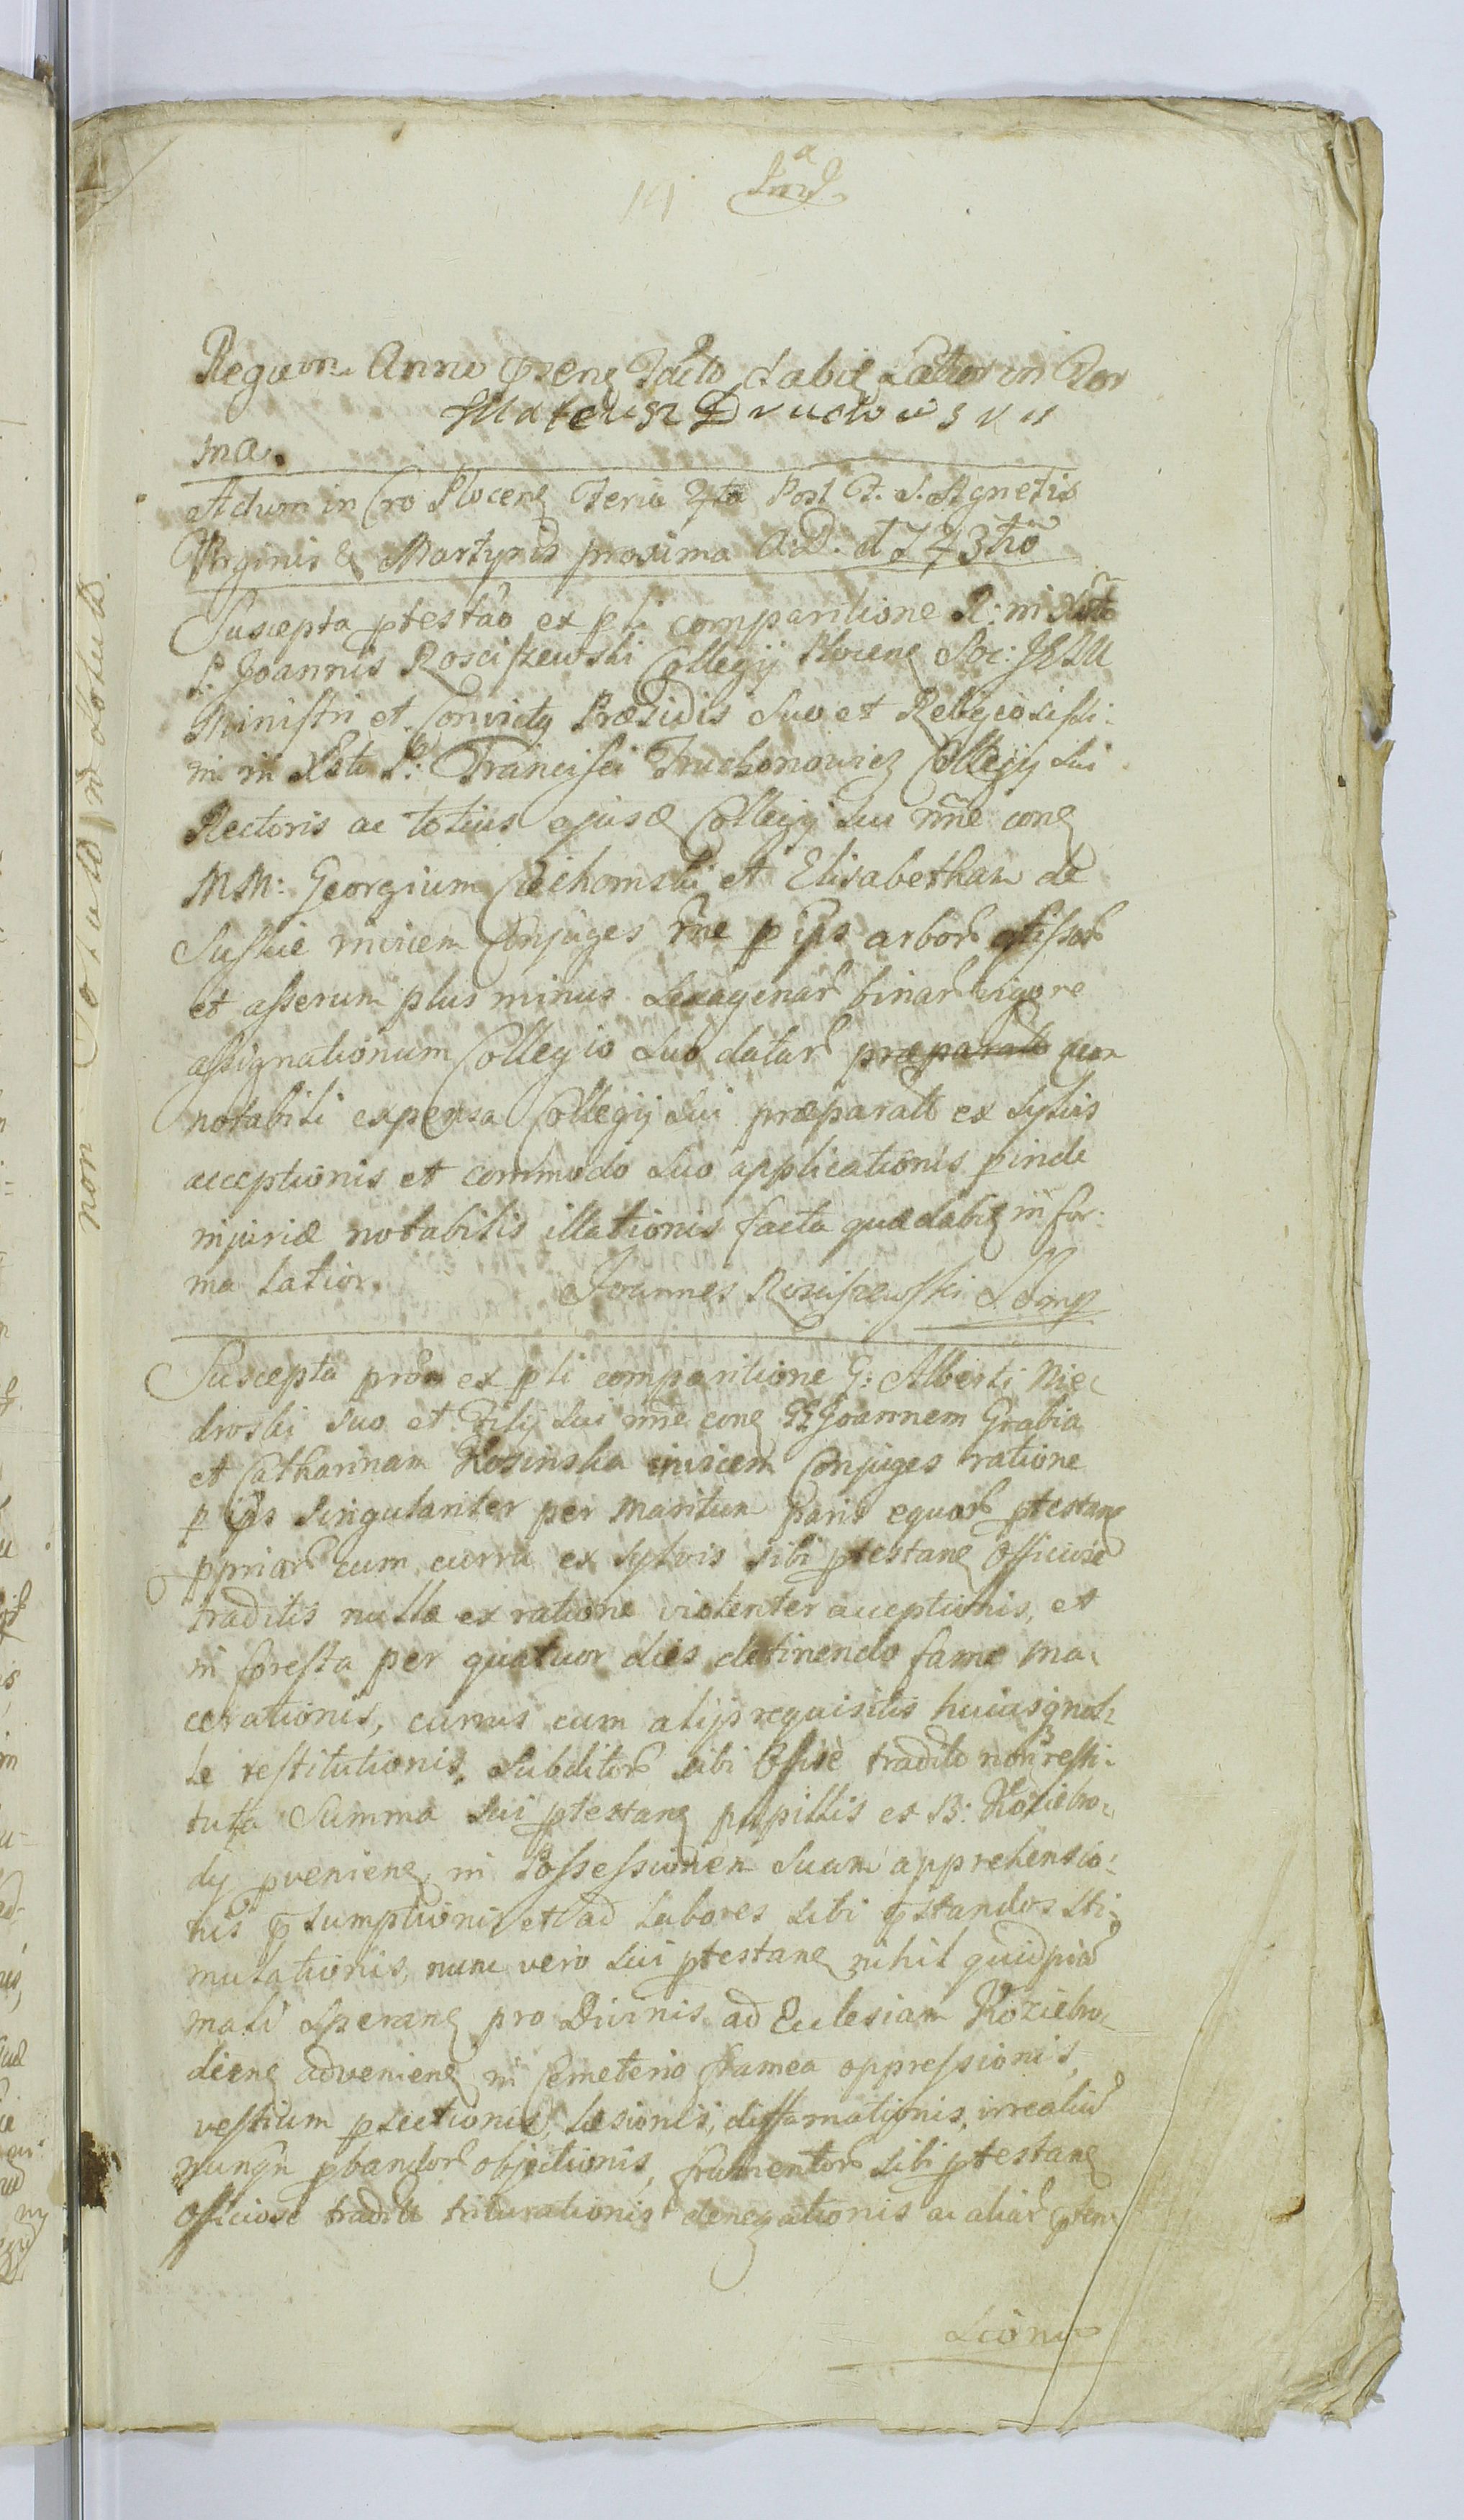 Regwon Anno Præsene Facto dabit Latior in For
Mateusz Dructowski
ma.
Actum in Cro Plocene Feria 4ta Post F. S. Agnetis
Virginis & Martyris proxima A:D. 1743tio
Suscepta ptestao ex pli comparitione R: in Xsto
P. Joannis Rosciszewski Collegij Plocene Soc: JESU
Ministri et Convictg Præsidis suo et Religiosissi:
mi in Xsto P: Francisci Truchonowicz Collegij sui
Rectoris ac totius ejusd Collegij sui nme cone
MM: Georgium Ciechomski et Elisabetham de
Suskie invicem Conjuges rne p ips arbor
et asserum plus minus sexagenar binar vigore
assignationum Collegio suo datar præparat cum
notabili expensa Collegij sui præparatt ex sylvis
acceptionis et commodo suo applicationis pinde
injuriæ notabilis illationis facta quæ dabit in for:
ma latior. Joannes Rosciszewski S.J. mp
Suscepta prom ex pli comparitione G: Alberti Nie
droski suo et Filij sui nme cone GG Joannem Grabia
et Catharinam Kosinska invicem Conjuges ratione
p ips singulariter per Maritum Paris equor ptestane
ppriar cum curru ex sylvis sibi ptestane Officiose
traditis nulla ex ratione violenter acceptionis, et
in foresta per quatuor dies detinendo fame ma
cerationis, currus cum alijs requisitis hucusq nul:
le restitutionis, subditor sibi Offise tradito non resti:
tuta Summa sui ptestane pupillis ex B: Koziebro:
dy pveniene in Possessionem suam apprehensio:
nis psumptionis et ad labores sibi pstandos sti:
mulationis, nunc vero sui ptestane nihil quidpia
mali sperane pro Divinis ad Ecclesiam Koziebro
diene adveniene in Cemeterio framea oppressionis,
vestium plectionis læsionis, diffamationis, irrealiu
nunqn pbandor objectionis, frumentor sibi ptestane
Officiose tradit triturationis denegationis ac aliar pten
sionu
non